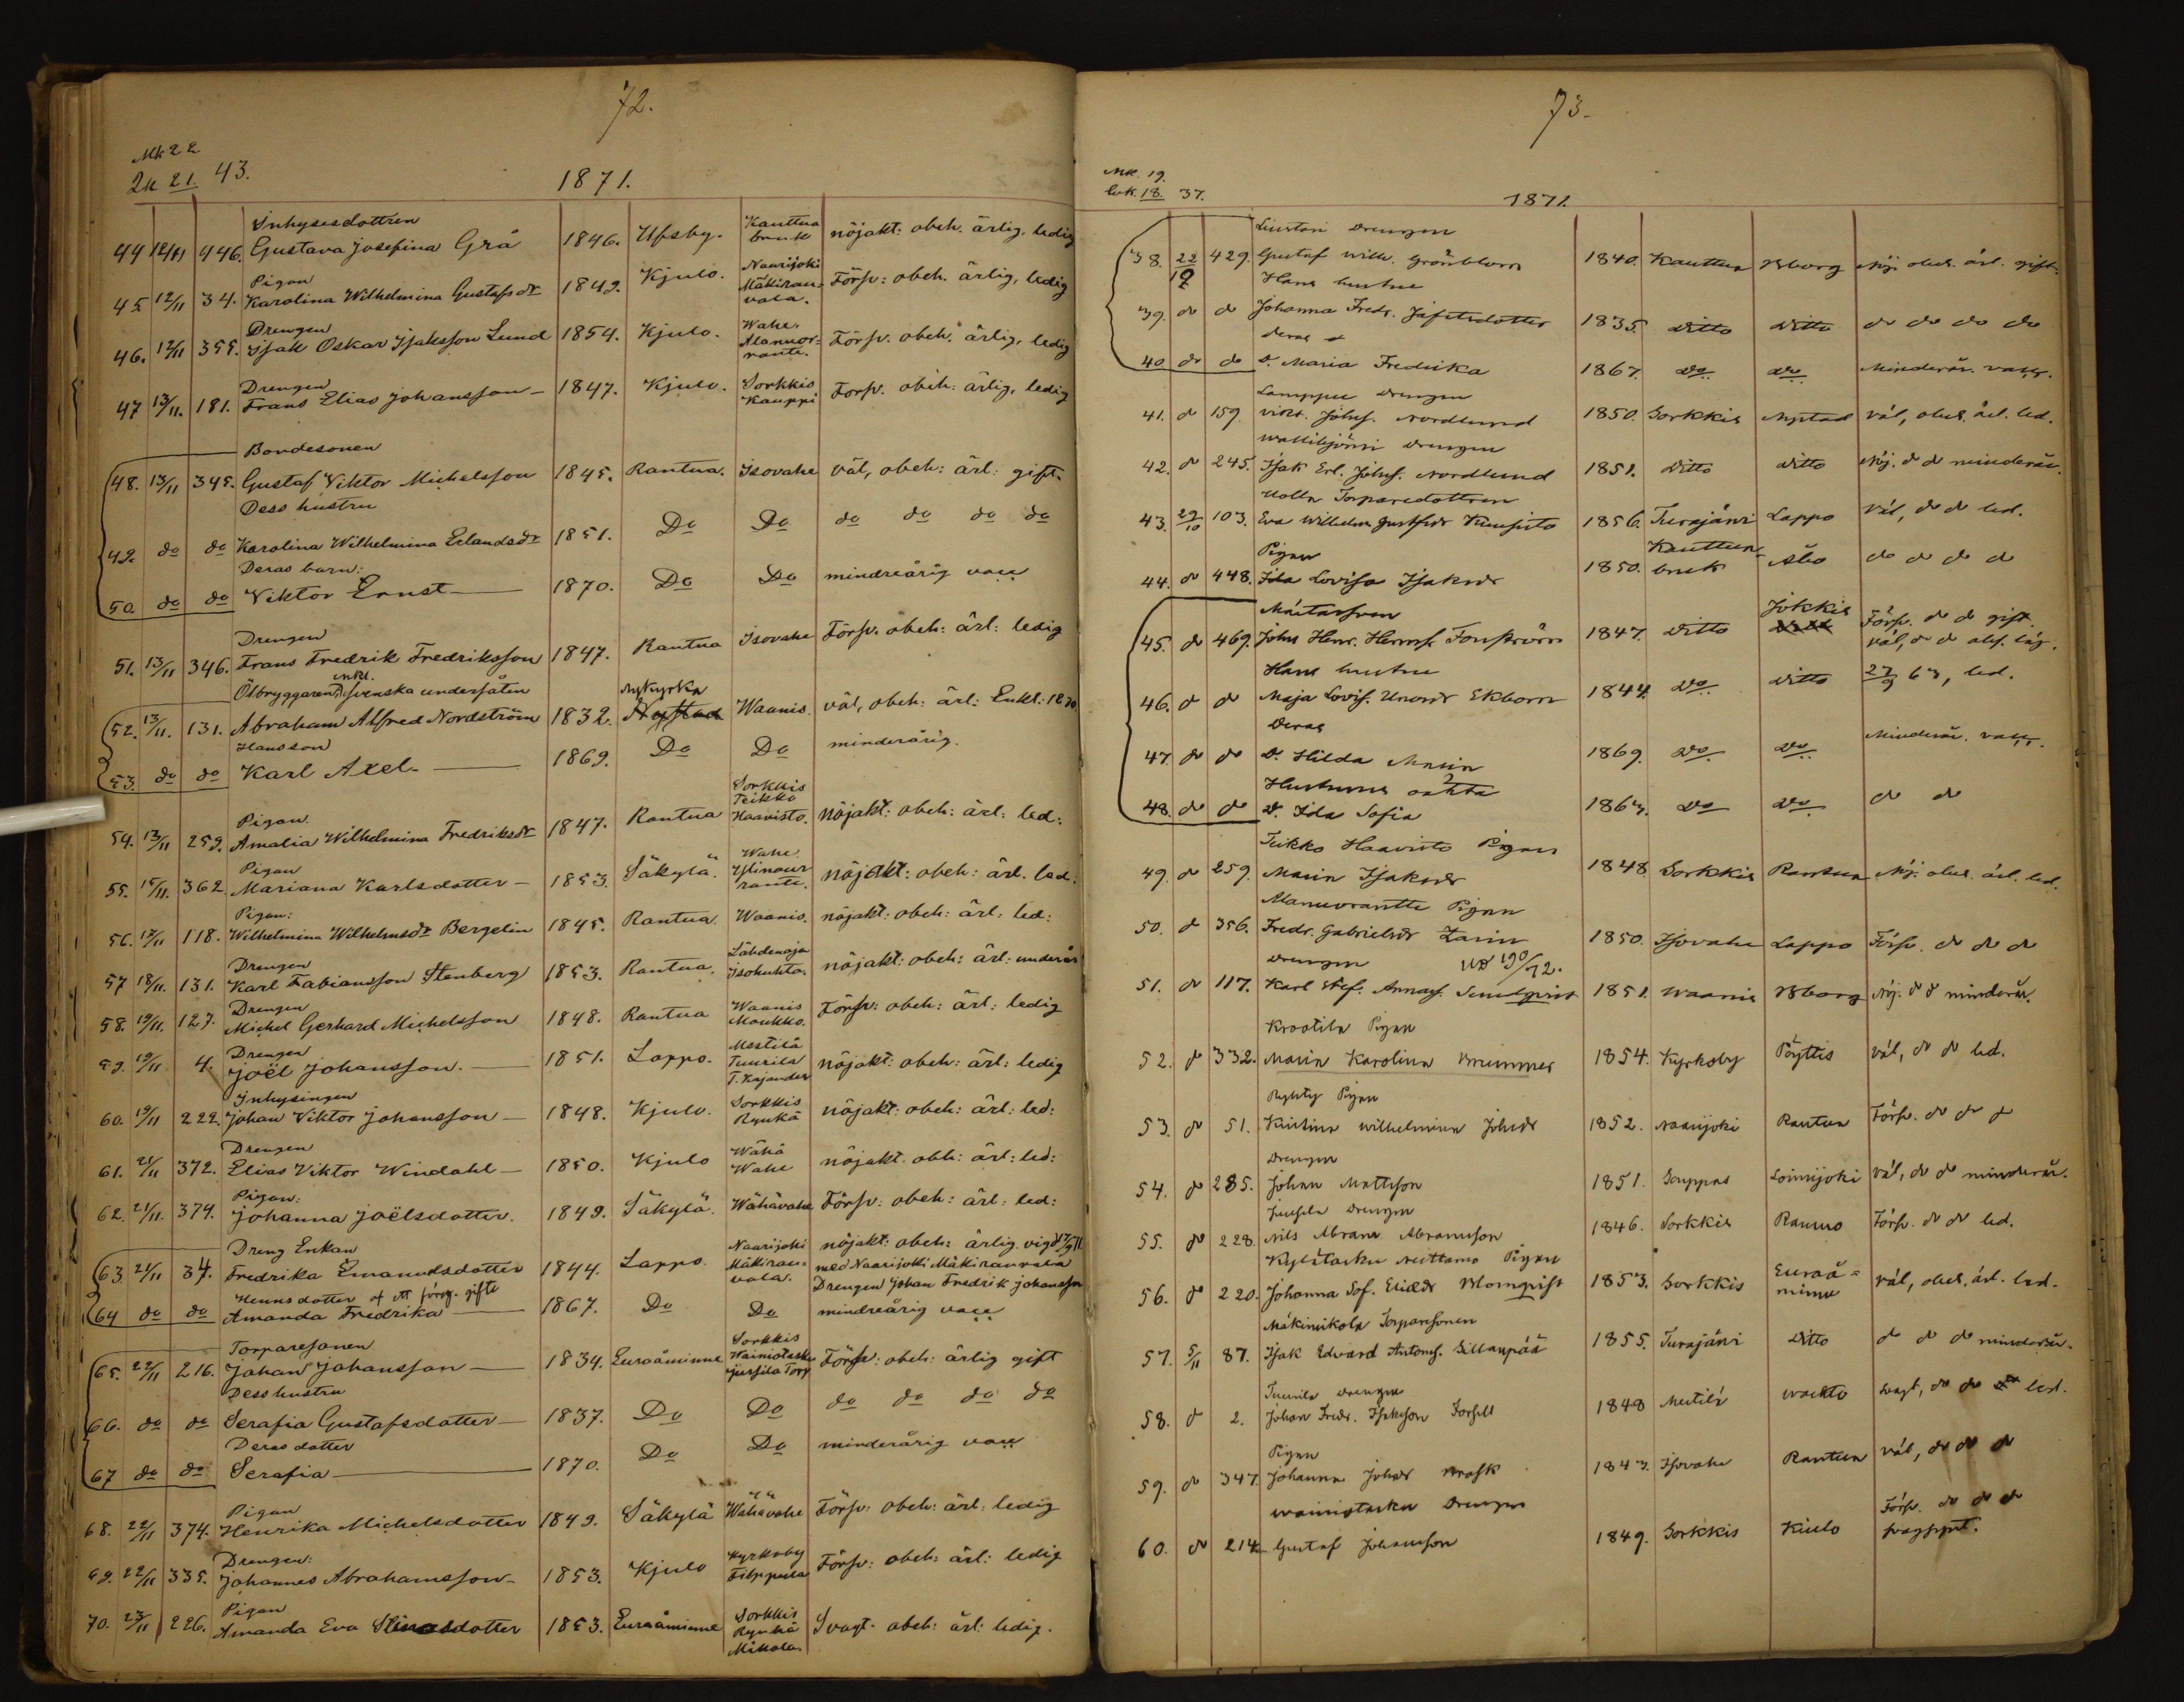 72.
Mk 22
2k 21. 43.
1871.
Inhysesdottren
44 12/11 446. Gustava Josefina Grå 1846. Ulfsby. Kauttua bruk nöjakt: obeh. ärlig, ledig
Pigan
45 12/11 34. Karolina Wilhelmina Gustafsdr 1849. Kjulo. Naarijoki Mäkirauvola. Försv: obeh. ärlig, ledig
Drengen
46. 12/11 355. Isak Oskar Isaksson Lund 1854. Kjulo. Wahe. Försv. obeh. ärlig, ledig
Drengen
47 13/11. 181. Frans Elias Johansson 1847. Kjulo. Sorkkis Kauppi Försv. obeh: ärlig, ledig
Bondesonen
48. 13/11 345. Gustaf Viktor Michelsson 1845. Rantua. Isovahe väl, obeh: ärl: gift.
Dess hustru
49. do do Karolina Wilhelmina Erlandsdr 1851. Do Do do do do do
Deras barn:
50. do do Viktor Ernst 1870. Do Do mindreårig vacc
Drengen
51. 13/11 346. Frans Fredrik Fredriksson 1847. Rantua Isovahe Försv. obeh: ärl: ledig
enkl.
Ölbryggaren, svenska undersåten
52. 13/11. 131. Abraham Alfred Nordström 1832. Nykyrka Nystad Waanis. väl, obeh: ärl: Enkl: 1870
Hans son
53. do do Karl Axel 1869. Do Do minderårig.
Pigan
54. 13/11 259. Amalia Wilhelmina Fredriksdr 1847. Rantua Sorkkis Teikko Haavisto. nöjakt: obeh: ärl: led:
Pigan
55. 15/11. 362. Mariana Karlsdotter 1853. Säkylä. Wahe nöjakt: obeh: ärl. led:
Pigan:
56. 17/11 118. Wilhelmina Wilhelmsdr Bergelin 1845. Rantua. Waanis. nöjakt: obeh: ärl: led:
Drengen
57 18/11. 131. Karl Fabiansson Stenberg 1853. Rantua. Lähdenoja Isokuhta. nöjakt: obeh: ärl: underår
Drengen
58. 19/11. 127. Michel Gerhard Michelsson 1848. Rantua Waanis Moukko. Försv: obeh: ärl: ledig
Drengen
59. 19/11 4. Joël Johansson. 1851. Lappo. Mestilä Tuurila T. Kajander nöjakt: obeh: ärl: ledig
Inhysingen
60. 19/11 222. Johan Viktor Johansson 1848. Kjulo. Sorkkis Rynkä nöjakt: obeh: ärl: led:
Drengen
61. 21/11 372. Elias Viktor Windahl 1850. Kjulo Wähä Wahe nöjakt. obh: ärl: led:
Pigan:
62. 21/11. 374. Johanna Joëlsdotter. 1849. Säkylä. Wähävahe Försv: obeh: ärl: led:
Dreng Enkan
63. 21/11 34. Fredrika Emanuelsdotter 1844. Lappo. Naarijoki Mäkirauvola. nöjakt: obeh: ärlig. vigd
med Naarijoki Mäkirauvola
Drengen Johan Fredrik Johansson
Hennes dotter af ett föreg. gifte
64 do do Amanda Fredrika 1867. Do Do mindreårig vacc
Torparesonen
65. 22/11 216. Johan Johansson 1834. Euraåminne Sorkkis Wainiotasku Jussila Torp Försv: obeh: ärlig gift
Dess hustru
66. do do Serafia Gustafsdotter 1837. Do Do do do do do
Deras dotter
67 do do Serafia 1870. Do Do minderårig vacc
Pigan
68. 22/11 374. Henrika Michelsdotter 1849. Säkylä Wähävahe Försv: obeh: ärl: ledig
Drengen:
69. 22/11 335. Johannes Abrahamsson 1853. Kjulo Kyrkoby Filppula Försv: obeh: ärl: ledig
Pigan
70. 23/11 226. Amanda Eva 1853. Euraåminne Sorkkis Rynkä Mikola. Svagt. obeh: ärl: ledig.
73.
Mk. 19.
Qvk. 18. 37.
1871.
Drengen
38. 22/10 429. Gustaf Wilh. Grönblom 1840. Kauttua Nöj. obeh. ärl. gift.
Hans hustru
39. do do Johanna Fredr. Jafetsdotter 1835. Ditto Ditto do do do do
Deras
40. do do D. Maria Fredrika 1867. Do Do Minderår. vacc.
Lamppu Drengen
41. do 159. Vikt. Johss. Nordlund 1850. Sorkkis Nystad väl, obeh. ärl. led.
Drengen
42. do 245. Isak Erl. Johss. Nordlund 1851. Ditto Ditto Nöj. do do minderår.
Torparedottren
43. 29/10 103. Eva Wilhelm. Gustfsdr Kuusisto 1856. Turajärvi Lappo Väl, do do led.
Pigan
44. do 448. Ida Lovisa Isaksdr 1850. Kauttua bruk Åbo do do do do
45. do 469. Johan Henr. Henrss. Forsström 1847. Ditto Jokkis Försv. do do gift.
Hans hustru
46. do do Maja Lovis. Ekbom 1844. Do Ditto 27/9 63, led.
Deras
47. do do D. Hilda Maria 1869. Do Do Minderår. vacc.
Hustruns oäkta
48. do do D. Ida Sofia 1863. Do Do do do
Teikko Haavisto Pigan
49. do 259. Maria Isaksdr 1848. Sorkkis Rantua Nöj. obeh. ärl. led.
Pigan
50. do 356. Fredr. Gabrielsdr 1850. Isovahe Lappo Försv. do do do
Drengen
51. do 117. Karl Stef. 1851. Waanis Nöj. do do minderår.
Krootila Pigan
52. do 332. Maria Karolina 1854. Kyrkoby Pöyttis väl, do do led.
Pigan
53. do 51. Kristina Wilhelmina Johsdr 1852. Naarijoki Rantua Försv. do do do
Drengen
54. do 285. Johan Mattsson 1851. Loimijoki väl, do do minderår.
Jussila Drengen
55. do 228. Nils Abram Abramsson 1846. Sorkkis Raumo Försv. do do led.
Pigan
56. do 220. Johanna Sof. Blomqvist 1853. Sorkkis Euraåminne väl, obeh. ärl. led.
Mäkinikola Torparesonen
57. 5/11 87. Isak Edvard Antonss. Sillanpää 1855. Turajärvi Ditto do do do minderår.
Tuurila Drengen
58. do 2. Johan Fredr. Isaksson Forsell 1848 Mestilä svagt, do do led.
Pigan
59. do 347. Johanna Johsdr 1843. Isovahe Rantua väl, do do do
Wainiotasku Drengen
60. do 214. Gustaf Johansson 1849. Sorkkis Kiulo Försv. do do do